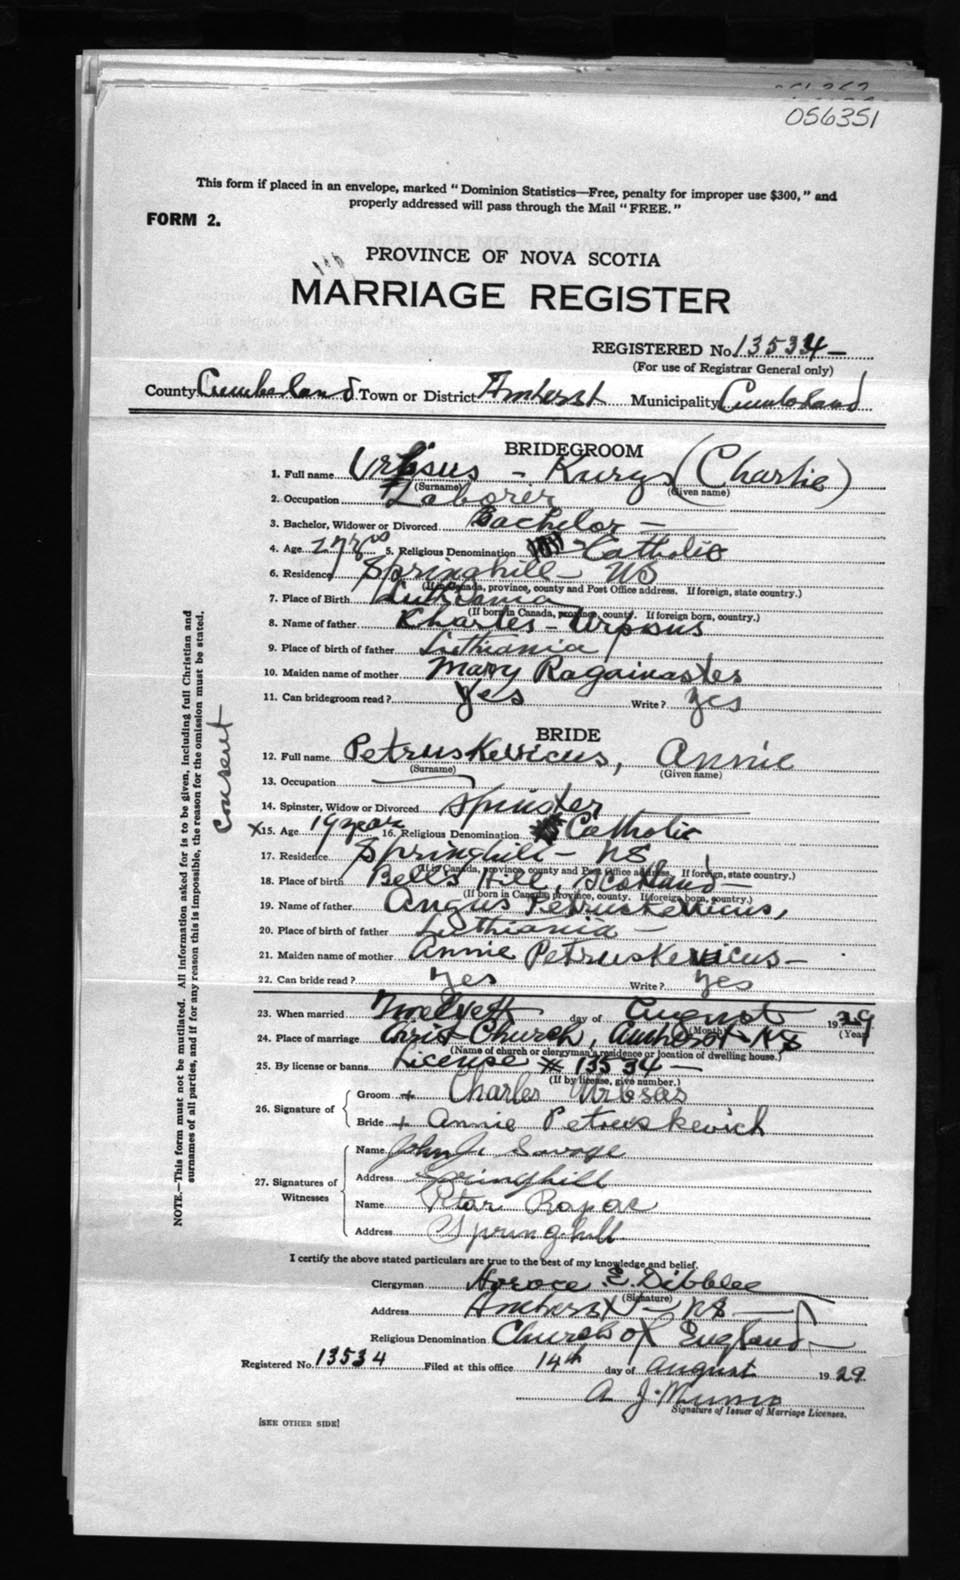 056351
This form if placed in an envelope, marked "Dominion Statistics—Free, penalty for improper use $300," and
properly addressed will pass through the Mail "FREE."
FORM 2.
PROVINCE OF NOVA SCOTIA
MARRIAGE REGISTER
REGISTERED No. 13534—
(For use of Registrar General only)
County Cumberland Town or District Amherst Municipality Cumberland
BRIDEGROOM
1. Full name Urbsus - Kurgs (Charlie)
(Surname) (Given name)
2. Occupation Laborer
3. Bachelor, Widower or Divorced Bachelor —
4. Age 27 yrs 5. Religious Denomination Catholic
6. Residence Springhill - NS
(If in Canada, province, county and Post Office address. If foreign, state country.)
7. Place of Birth Luthiania
(If born in Canada, province, county. If foreign born, country.)
8. Name of father Kharles - Urpsus
9. Place of birth of father Luthiania
10. Maiden name of mother Mary Ragainastes
11. Can bridegroom read? Yes Write? Yes
BRIDE
12. Full name Petruskevicus, Annie
(Surname) (Given name)
13. Occupation —
14. Spinster, Widow or Divorced Spinster
X15. Age 19 year 16. Religious Denomination Catholic
17. Residence Springhill - NS
(If in Canada, province, county and Post Office address. If foreign, state country.)
18. Place of birth Bells Hill, Scotland —
(If born in Canada, province, county. If foreign born, country.)
19. Name of father Angus Petruskevicus,
20. Place of birth of father Luthiania —
21. Maiden name of mother Annie Petruskevicus —
22. Can bride read? Yes Write? Yes
23. When married Twelveth day of August 1929
(Month) (Year)
24. Place of marriage Christ Church, Amherst NS
(Name of church or clergyman's residence or location of dwelling house.)
25. By license or banns License # 13534 —
(If by license, give number.)
26. Signature of
Groom + Charles Urbsas
Bride + Annie Petruskevich
27. Signatures of Witnesses
Name John J. Savage
Address Springhill
Name Petar Rapac
Address Springhill
I certify the above stated particulars are true to the best of my knowledge and belief.
Clergyman Horace E. Dibblee
(Signature)
Address Amherst - NS
Religious Denomination Church of England
Registered No. 13534 Filed at this office 14th day of August 1929.
A. J. Munro
Signature of Issuer of Marriage Licenses.
[SEE OTHER SIDE]
NOTE.—This form must not be mutilated. All information asked for is to be given, including full Christian and
surnames of all parties, and if for any reason this is impossible, the reason for the omission must be stated.
consent